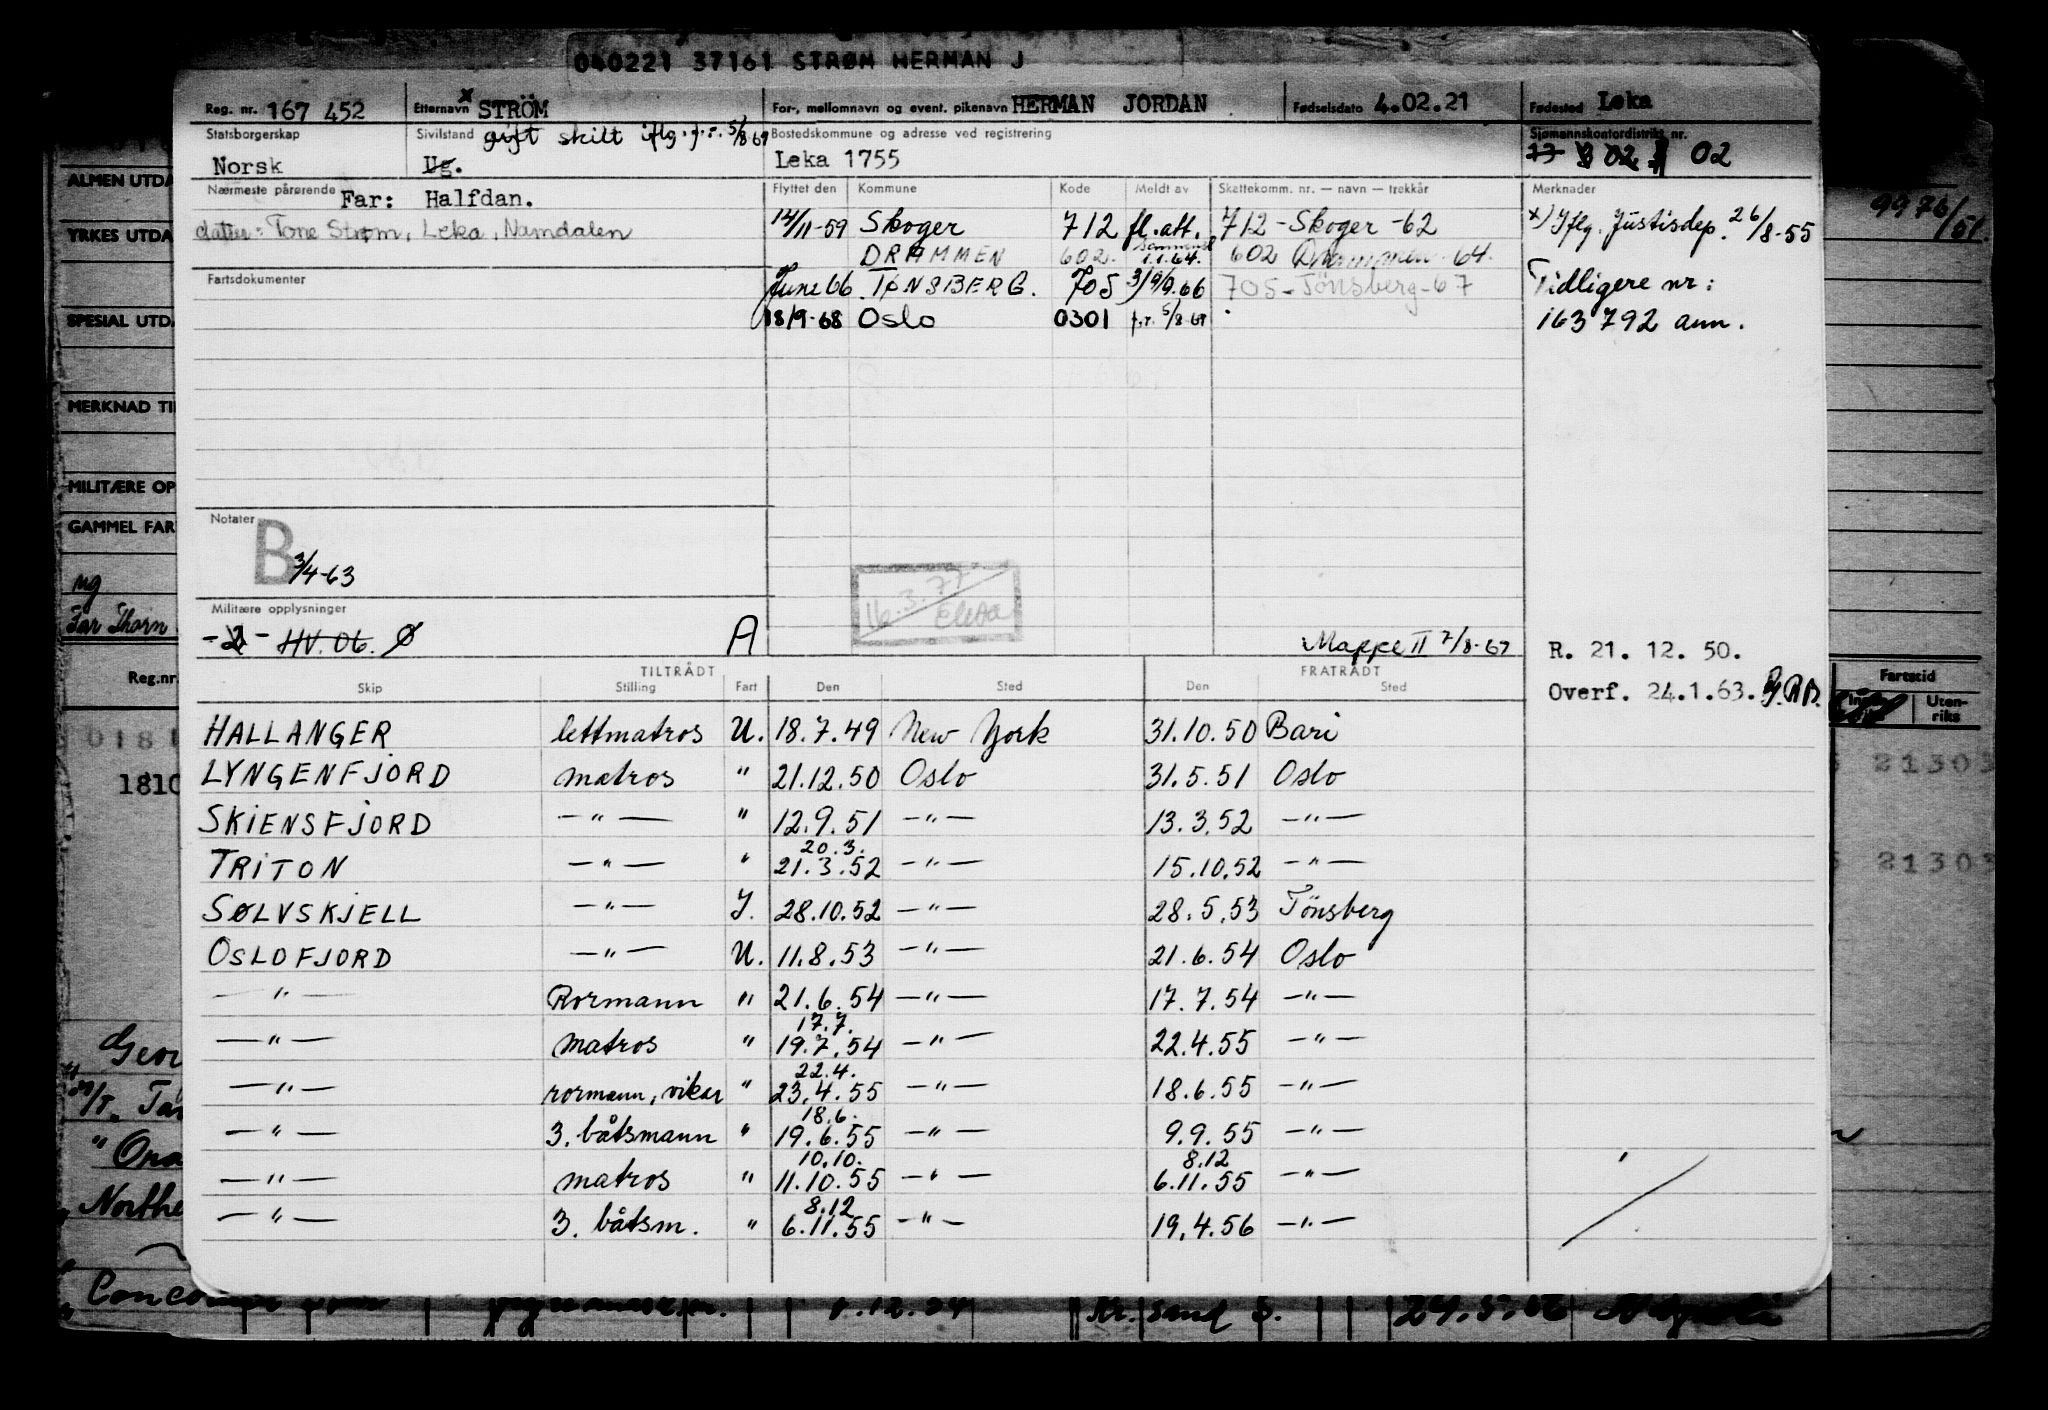 040221 37161 STRØM HERMAN J
Reg. nr. 167 452 Etternavn x STRÖM For-, mellomnavn og event. pikenavn HERMAN JORDAN Fødselsdato 4.02.21 Fødested Leka
Statsborgerskap Sivilstand gift skilt iflg. f.r. 5/8-69 Bostedskommune og adresse ved registrering Sjømannskontordistrikt nr.
Norsk Ug. Leka 1755 13 02 02
Nærmeste pårørende Far: Halfdan. Flyttet den Kommune Kode Meldt av Skattekomm. nr. — navn — trekkår Merknader
datter: Tone Strøm, Leka, Namdalen 14/11-59 Skoger 712 fl.att. 712 - Skoger - 62 x) Iflg. Justisdep. 26/8-55
DRAMMEN 602. 1.1.64. 602 Drammen - 64.
Fartsdokumenter June 66 TØNSBERG. 705 3/9.66 705 - Tönsberg - 67 Tidligere nr:
18/9-68 Oslo 0301 f.r. 5/8-69 163 792 ann.
Notater
B 3/4-63
16.3.77
Militære opplysninger
-2- HV. 06. Ø A Mappe II 7/8-67 R. 21. 12. 50.
TILTRÅDT FRATRÅDT
Skip Stilling Fart Den Sted Den Sted Overf. 24.1.63.
HALLANGER lettmatros U. 18.7.49 New York 31.10.50 Bari
LYNGENFJORD matros " 21.12.50 Oslo 31.5.51 Oslo
SKIENSFJORD —"— " 12.9.51 —"— 13.3.52 —"—
20.3.
TRITON —"— " 21.3.52 —"— 15.10.52 —"—
SØLVSKJELL —"— I. 28.10.52 —"— 28.5.53 Tönsberg
OSLOFJORD —"— U. 11.8.53 —"— 21.6.54 Oslo
—"— Rormann " 21.6.54 —"— 17.7.54 —"—
17.7.
—"— matros " 19.7.54 —"— 22.4.55 —"—
22.4.
—"— rormann, vikar " 23.4.55 —"— 18.6.55 —"—
18.6.
—"— 3. båtsmann " 19.6.55 —"— 9.9.55 —"—
10.10. 8.12
—"— matros " 11.10.55 —"— 6.11.55 —"—
8.12
—"— 3. båtsm. " 6.11.55 —"— 19.4.56 —"—
ALMEN UTDA
YRKES UTDA
SPESIAL UTD
MERKNAD TI
MILITÆRE OP
GAMMEL FAR
ug
Far Thorn
Reg.nr.
0181
1810
9976/51.
Fartstid
Uten-
riks
21303
21303